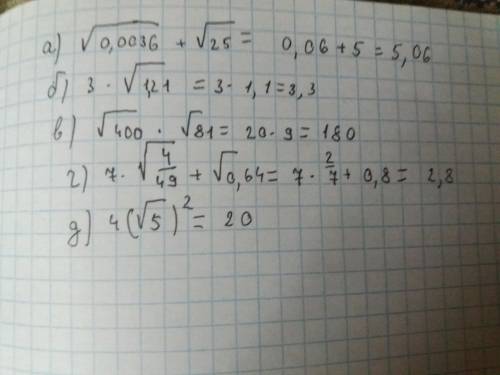 а) √0,0036 + √25 = 0,06 + 5 = 5,06
б) 3 · √1,21 = 3 · 1,1 = 3,3
в) √400 · √81 = 20 · 9 = 180
г) 7 · √4/49 + √0,64 = 7 · 2/7 + 0,8 = 2,8
д) 4(√5)² = 20